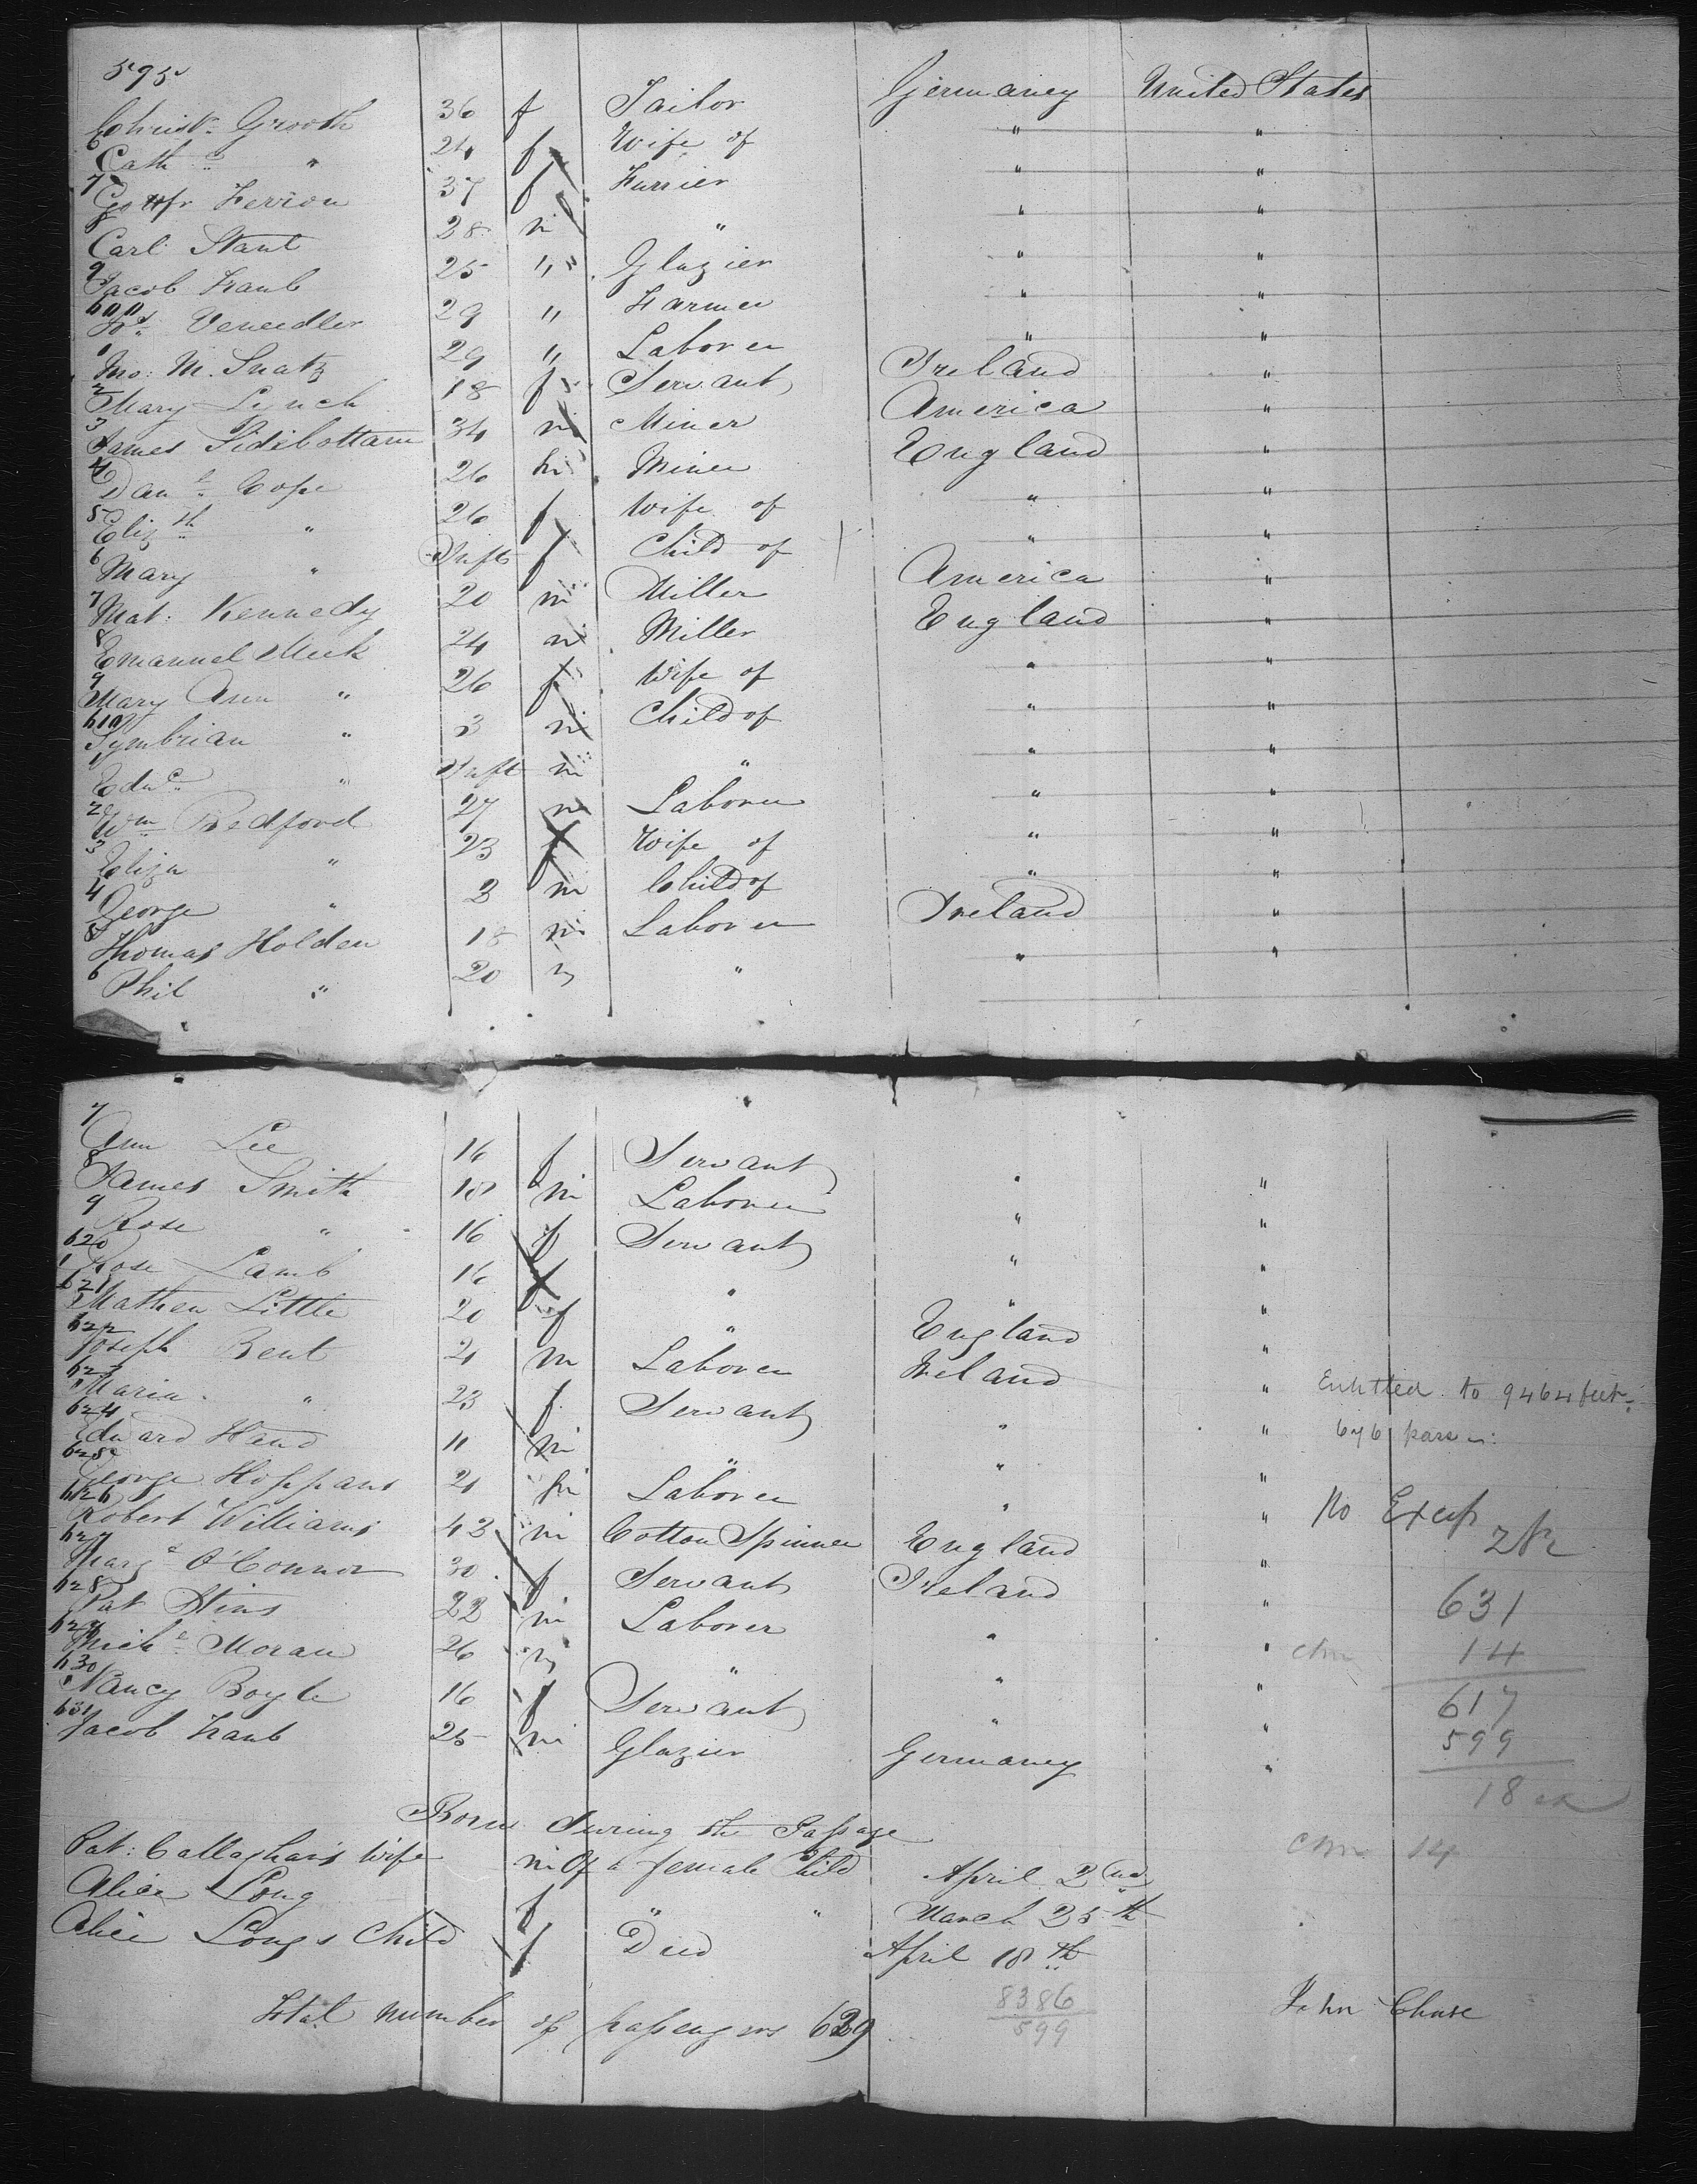 595
Christn Grooth 36 f Tailor Germaney United States
6 Cath " 24 f Wife of " "
7 Gottfr Ferrion 37 f Furrier " "
8 Carl Stant 28 m " " "
9 Jacob Traub 25 " Glazier " "
600 Veneedler 29 " Farmer " "
1 Mo: M. Snatz 29 " Laborer " "
2 Mary Lynch 18 f Servant Ireland "
3 James Sidebottam 34 m Miner America "
4 Danl Cope 26 m Miner England "
5 Elizth " 26 f Wife of " "
6 Mary " Inft f Child of " "
7 Mat: Kennedy 20 m Miller America "
8 Emanuel Meek 24 m Miller England "
9 Mary Ann " 26 f Wife of " "
610 Symbrian " 3 m Child of " "
1 Edwd " Inft m " " "
2 Wm Bedford 27 m Laborer " "
3 Eliza " 23 f Wife of " "
4 George " 3 m Child of " "
5 Thomas Holden 18 m Laborer Ireland "
6 Phil " 20 m " " "
7 Ann Lee 16 f Servant " "
8 James Smith 18 m Laborer " "
9 Rose " 16 f Servant " "
620 Rose Lamb 16 f " " "
621 Mathew Little 20 f " England "
622 Joseph Bent 21 m Laborer Ireland "
623 Maria " 23 f Servant " "
624 Edward Hend 11 m " " "
625 George Hoppans 21 m Laborer " "
626 Robert Williams 42 m Cotton Spinner England "
627 Margt O'Connor 30 f Servant Ireland "
628 Pat Hins 22 m Laborer " "
629 Michl Moran 26 m " " "
630 Nancy Boyle 16 f Servant " "
631 Jacob Traub 25 m Glazier Germaney "
Entitled to 9464 feet
676 passrs:
No Excess
631
14
617
599
18 ex
Born During the Passage
Pat: Callaghan's Wife m Of a female Child April 2nd
Alice Long f " " March 25th
Alice Longs Child f Died April 18th
14
8386
599
Total number of passengers 629
John Chase